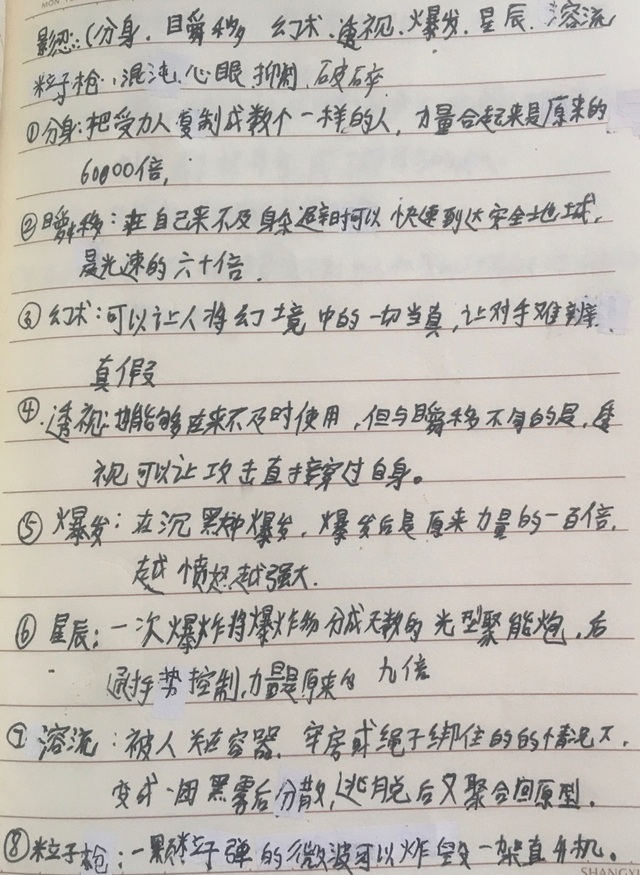 影忍:(分身、瞬移、幻术、透视、爆发、星辰、溶流
粒子枪、混沌、心眼、抑制、破碎
①分身:把受力人复制成数个一样的人,力量合起来是原来的
60000倍,
②瞬移:在自己来不及身朵避时可以快速到达安全地域,
是光速的六十倍.
③幻术:可以让人将幻境中的一切当真,让对手难辨
真假
④透视:也能够在来不及时使用,但与瞬移不同的是,透
视可以让攻击直接穿过自身。
⑤爆发:在沉默中爆发,爆发后是原来力量的一百倍,
越愤怒越强大.
⑥星辰:一次爆炸将爆炸物分成无数的光型聚能炮,后
通手势控制,力量是原来的九倍
⑦溶流:被人关在容器、牢房或绳子绑住的的情况下,
变成一团黑雾后分散,逃脱后又聚合回原型.
⑧粒子枪:一颗粒子弹的微波可以炸毁一架直升机。
SHANGX